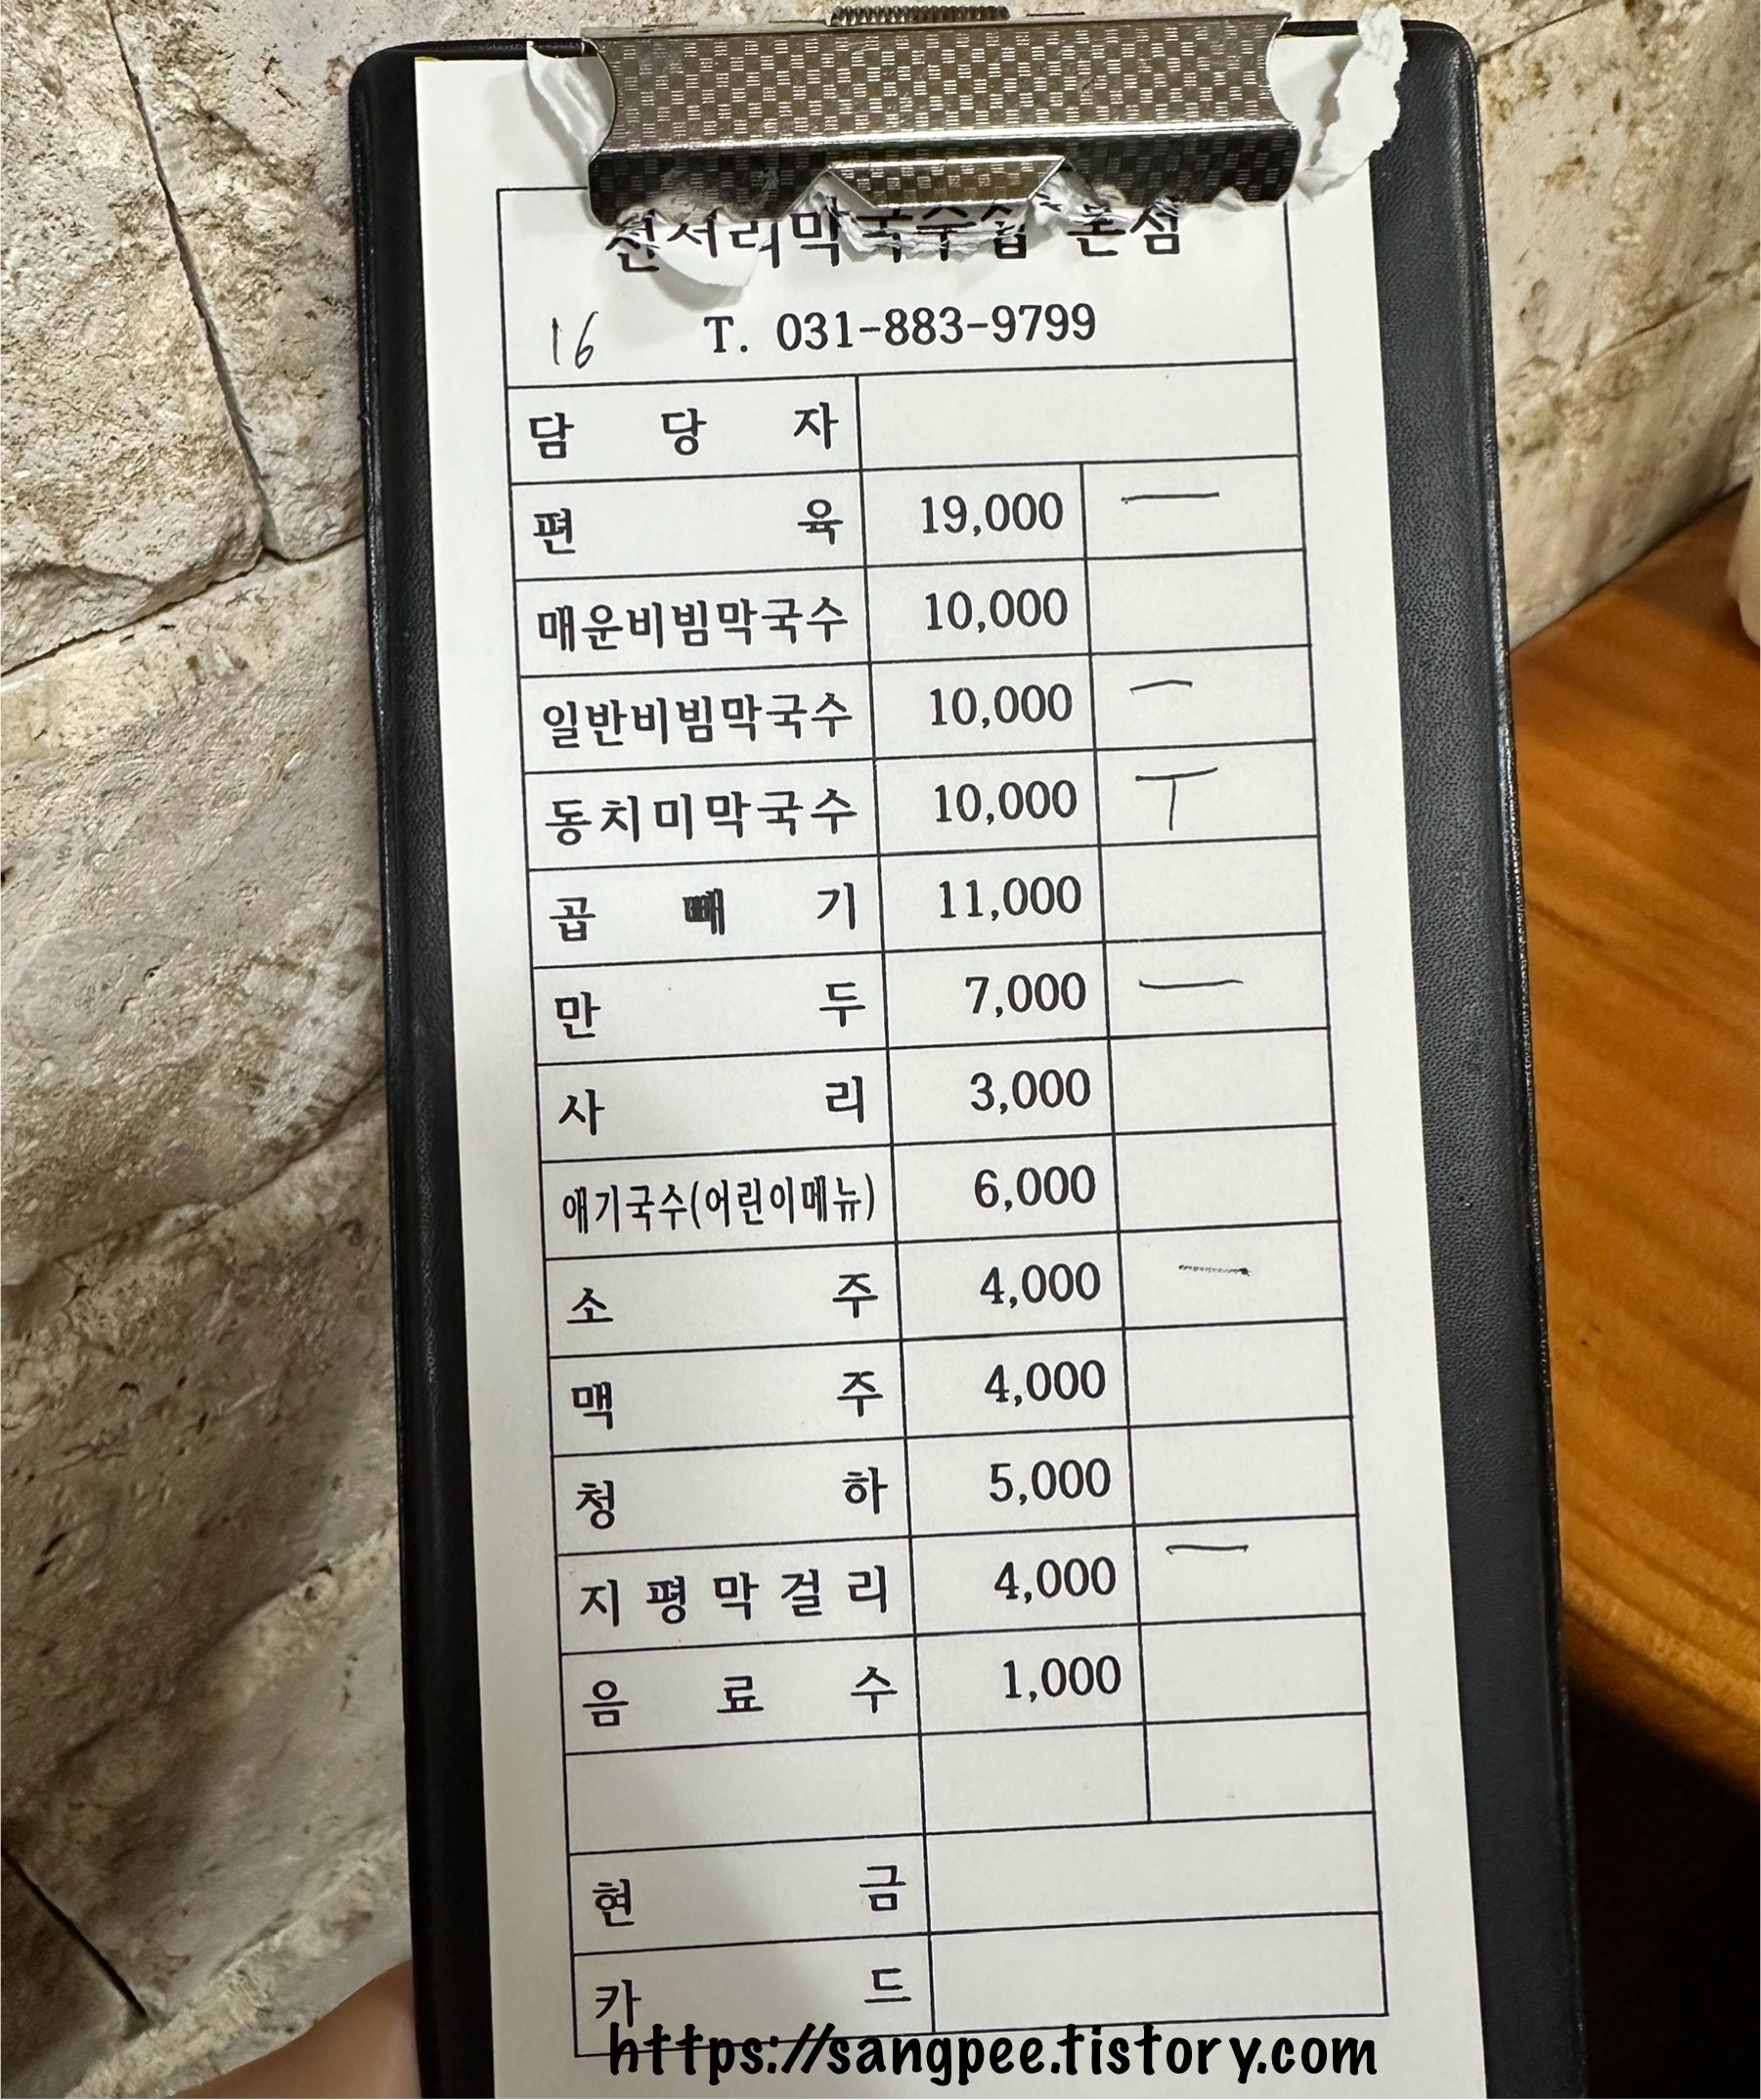 천서리막국수집 본점
16 T. 031-883-9799
담 당 자
편 육 19,000 一
매운비빔막국수 10,000
일반비빔막국수 10,000 一
동치미막국수 10,000 T
곱 빼 기 11,000
만 두 7,000 一
사 리 3,000
애기국수(어린이메뉴) 6,000
소 주 4,000 一
맥 주 4,000
청 하 5,000
지 평 막 걸 리 4,000 一
음 료 수 1,000
현 금
카 드
https://sangpee.tistory.com